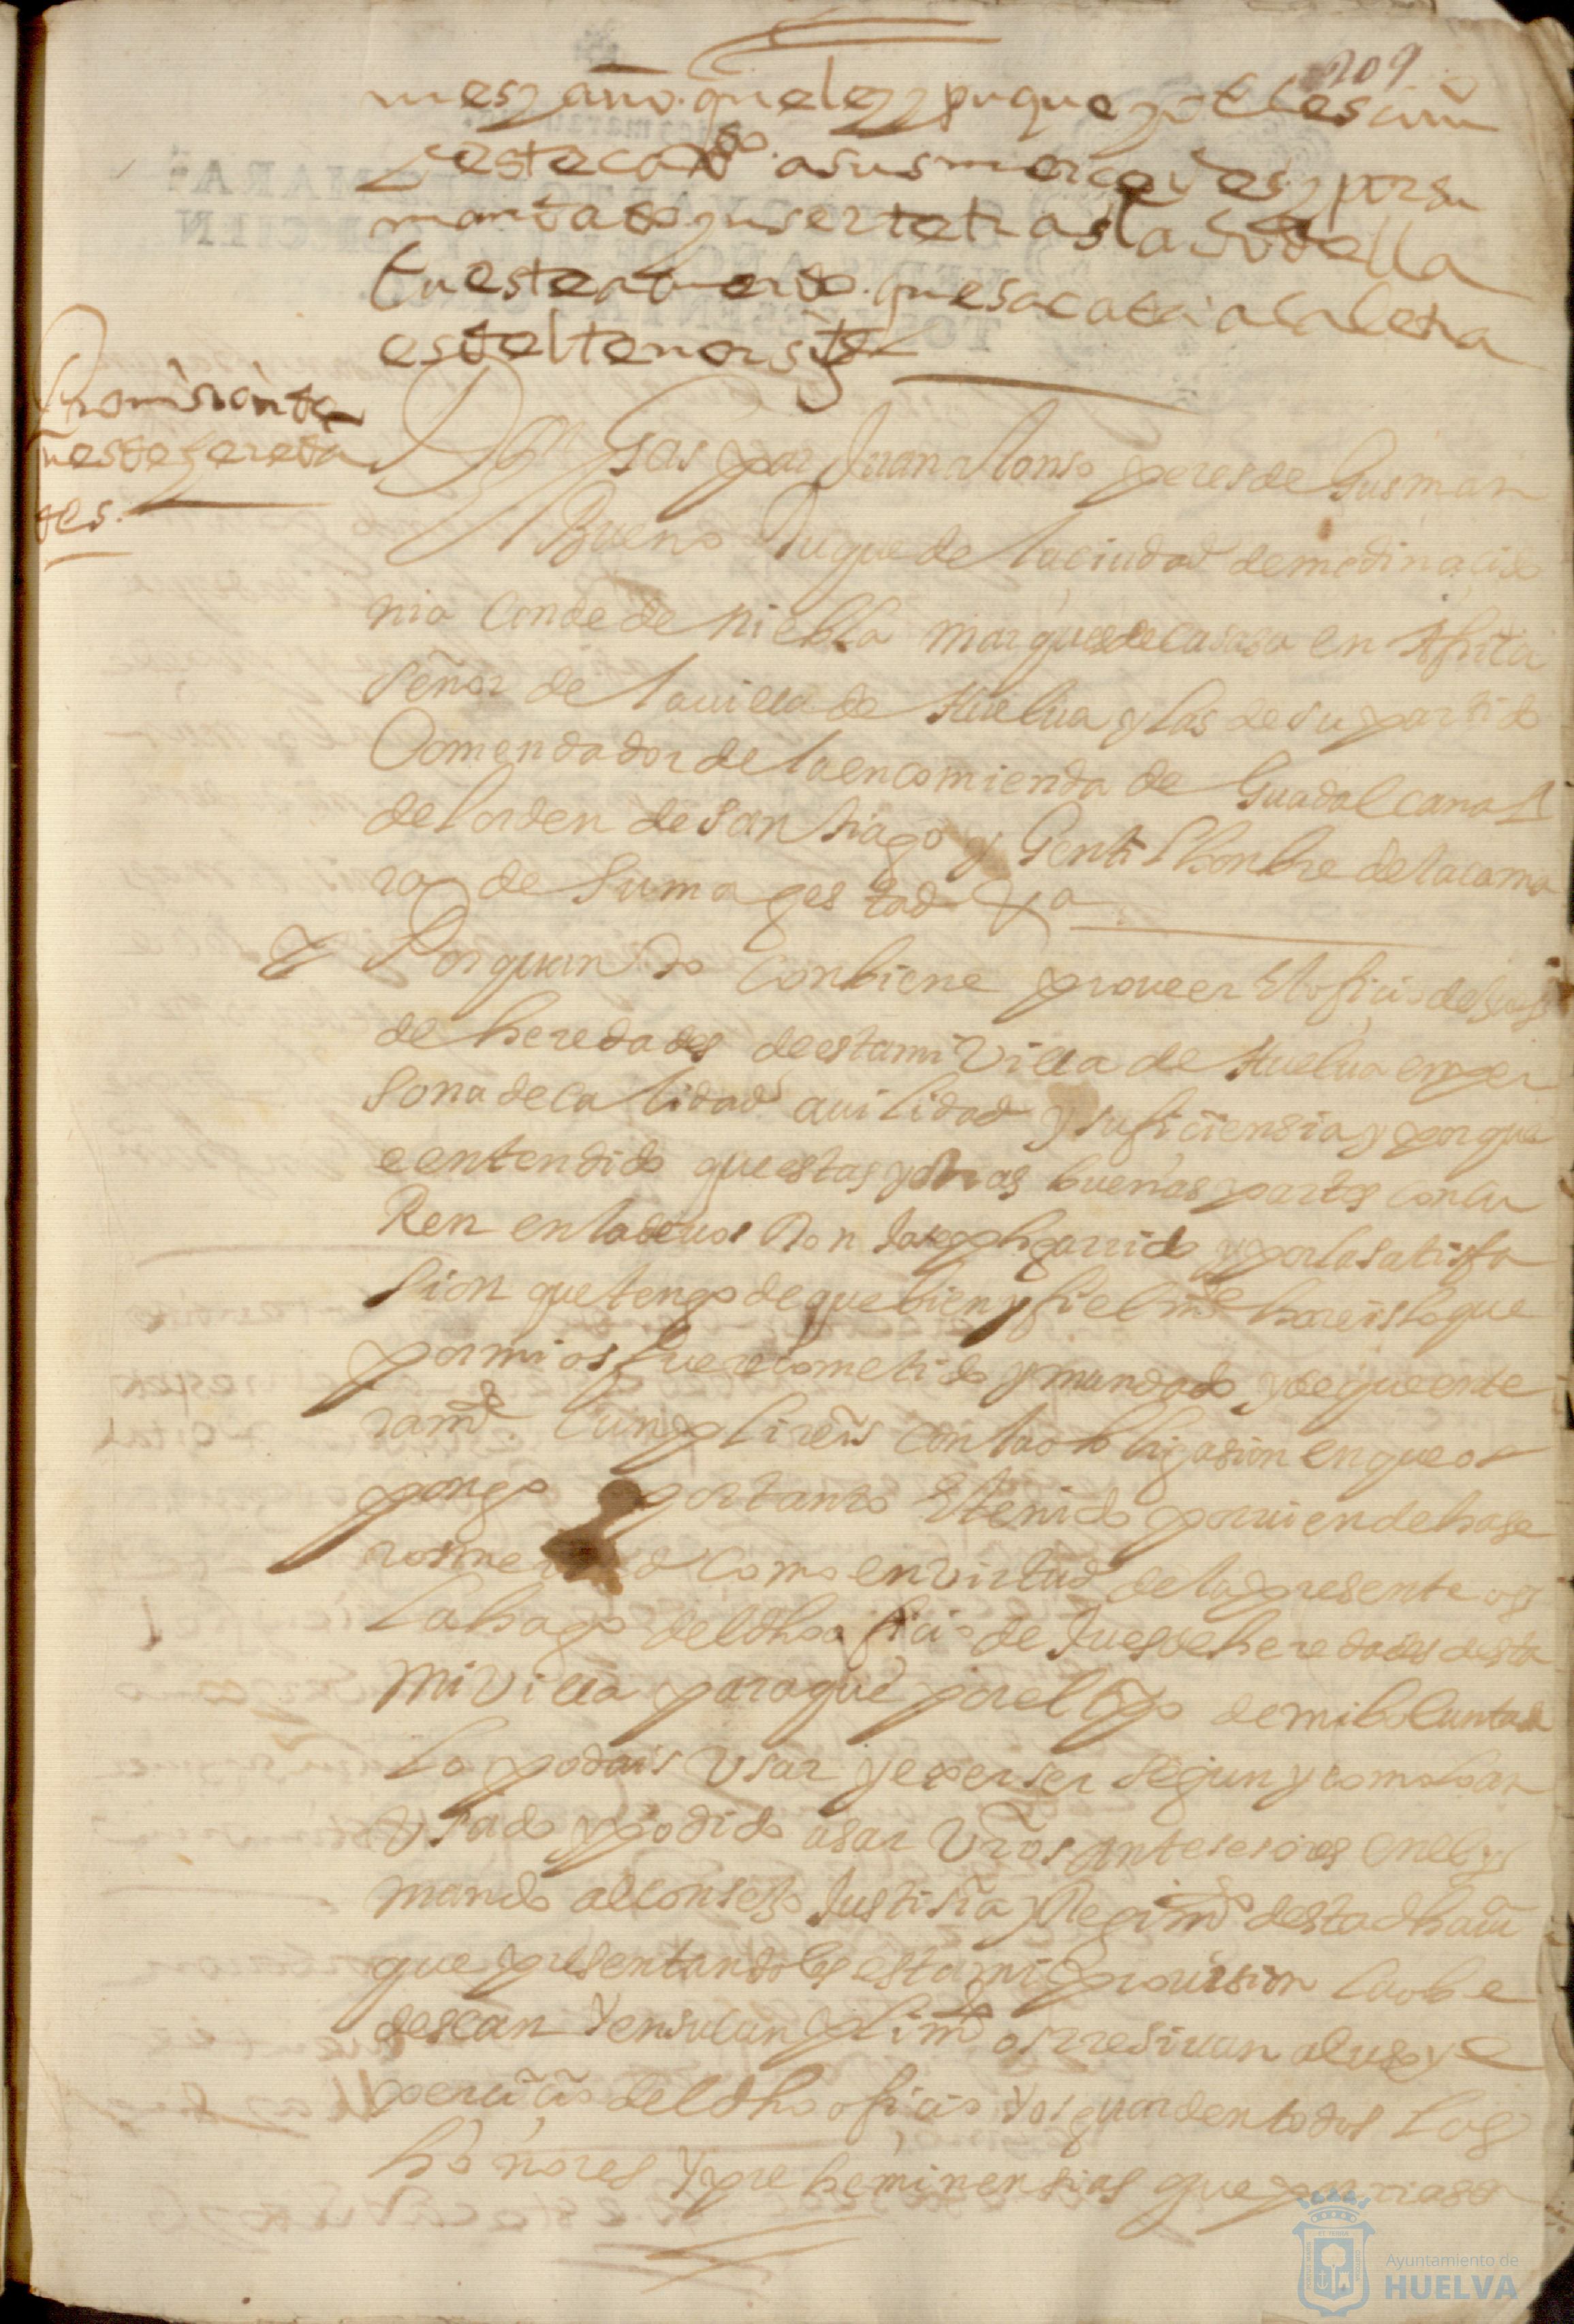 209
mes y año. que leyy su que yo el escriuº
deste cavdo. a sus mercedes y por su
mandado ynserte tras la dho della
En este acuerdo. que sacada a la letra
es del tenor sigte
Promission de
jues de hereda
des.
Don Gaspar Juan alonso peres de Gusman
El Bueno Duque de la ciudad de medina cido
nia Conde de Niebla marques de casasa en Africa
señor de la uilla de Huelua y las de su partido
Comendador de la encomienda de Guadalcanal
del orden de san tiago y Gentil honbre de la cama
ra de su magestad &a
Por quando Conbiene proueer El oficio de jues
de heredades de esta mi Villa de Huelua en per
sona de calidad auilidad y suficiensia y porque
e entendido que estas y otras buenas partes concu
Ren en la de vos Don Joseph garrido y por la satisfa
sion que tengo de que bien y fielmte hareis lo que
por mi os fuere cometido y mandado y de que ente
ramte. Cunplireis con la obligasion en que os
pongo por tanto E tenido por uien de hase
ros merced como en virtud de la presente os
La hago del dho oficio de Jues de heredades desta
mi Villa para que por el tpo de mi boluntad
Lo podais Usar y exerser segun y como lo an
Usado y podido usar Vros antesesores en el y
mando al consejo Justisia y Regimto desta dha uiª
que presentandoles esta mi Prouision la obe
descan Y en su cunplimto os resiuan al uso y e
xercicio del dho oficio Y os guarden todos Los
honores Y preheminensias que por rason
Ayuntamiento de
HUELVA